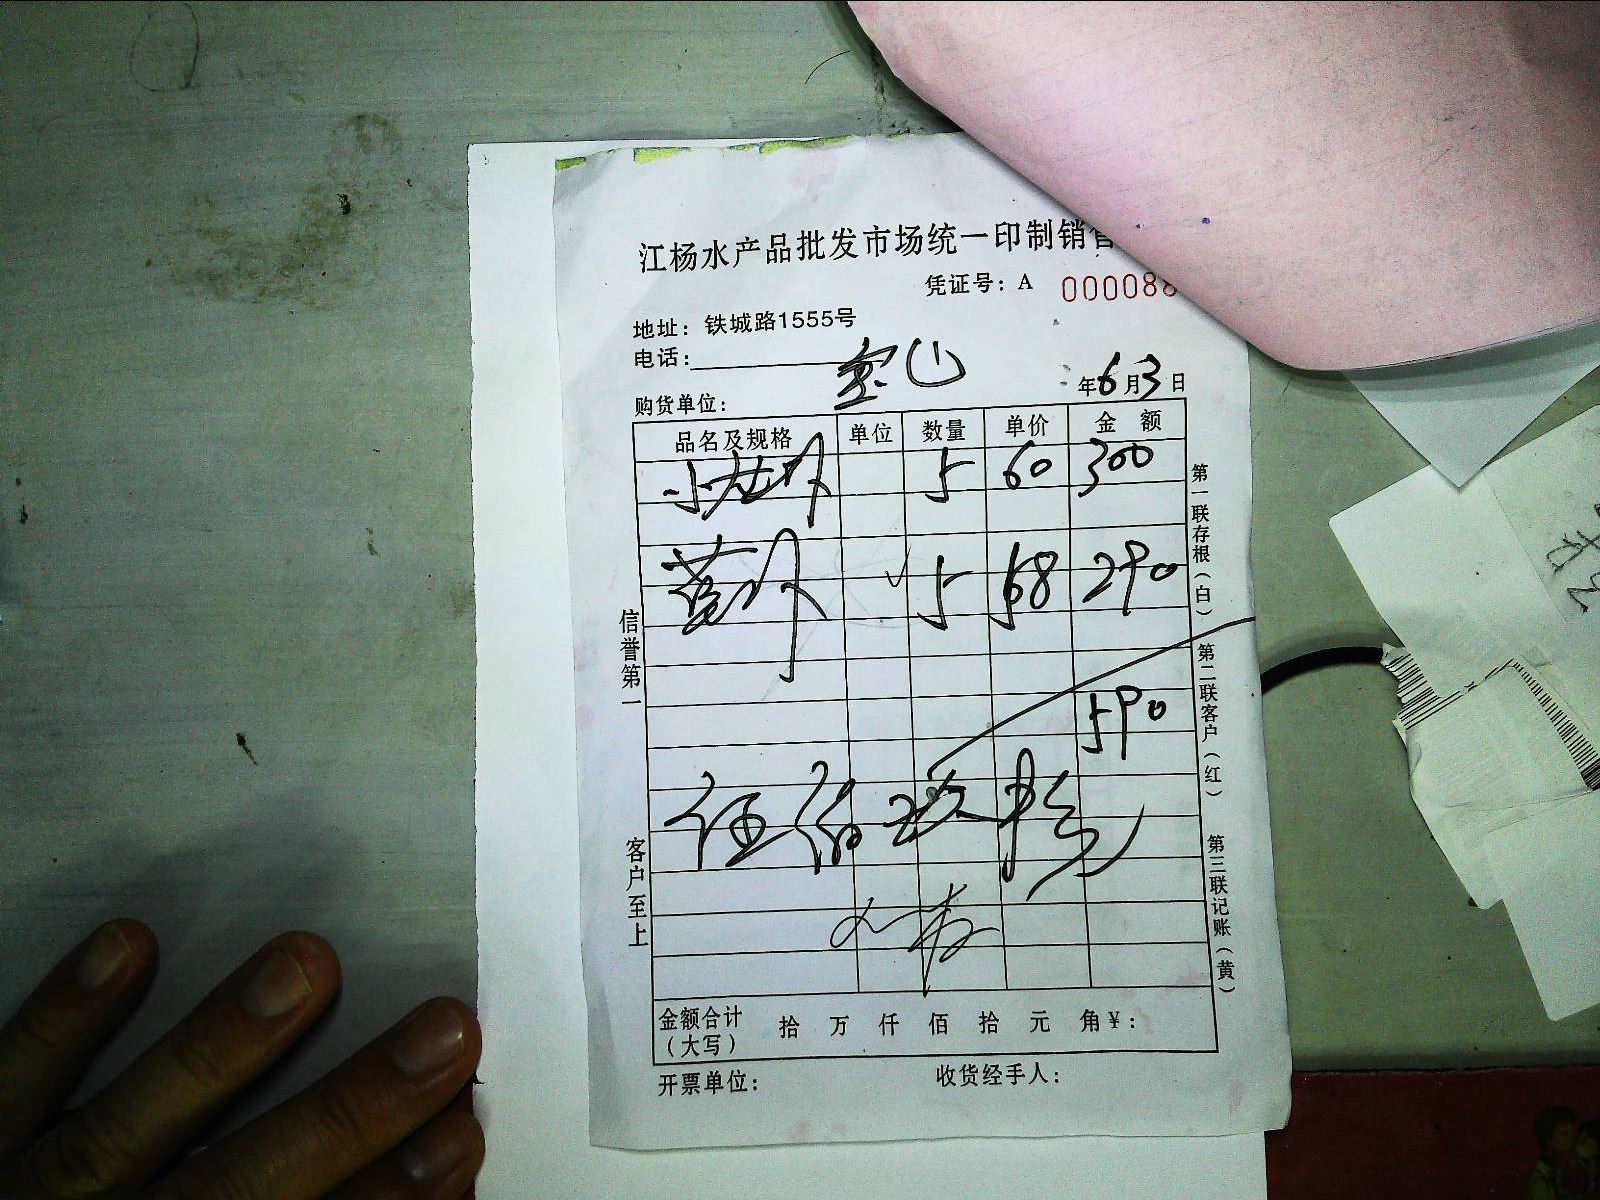 江杨水产品批发市场统一印制销售
凭证号：A 000088
地址：铁城路1555号
电话：
购货单位： 宝山
年6月3日
品名及规格 单位 数量 单价 金额
小龙虾 5 60 300
5 58 290
590
伍佰玖拾
金额合计（大写） 拾 万 仟 佰 拾 元 角￥：
开票单位： 收货经手人：
信誉第一
客户至上
第一联存根（白）
第二联客户（红）
第三联记账（黄）